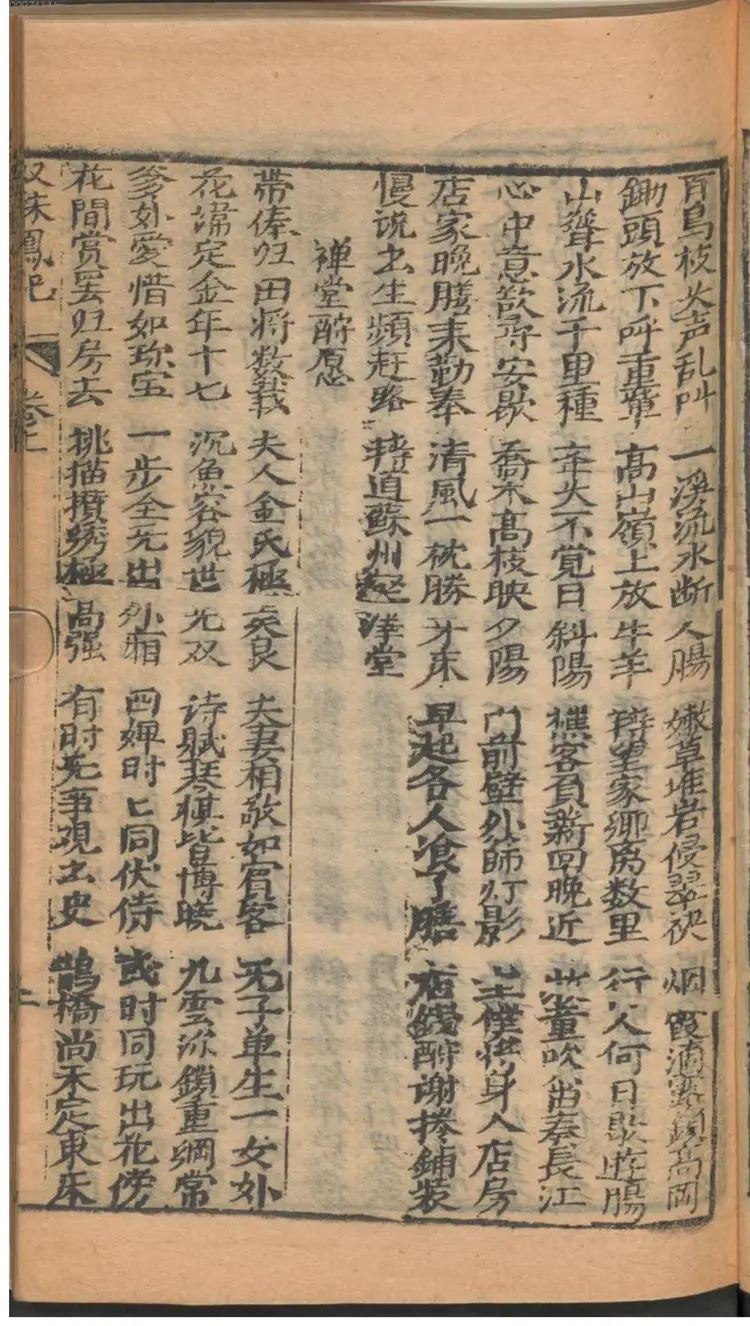 百鳥枝头声乱叫 一溪流水断人腸 嫩草堆岩侵翠袂 烟霞滴露鎖高岡
鋤頭放下呼重輩 高山嶺上放牛羊 家鄉离数里 行人何日歇遊腸
山聳水流千里種 年火不覚日斜陽 樵客負薪回晚近 童吹笛奏長江
心中意欲尋安歇 喬木高枝映夕陽 门前壁外師灯影 主僕将身入店房
店家晚膳来勤奉 清風一枕勝牙床 早起各人食了膳 店錢酧谢捲鋪装
慢说出生頻赶路 轉道蘇州 洋堂
禅堂酧愿
帶俸归田将数載 夫人金氏極 良 夫妻相敬如賓客 无子单生一女外
花 定金年十七 沉魚容貌世无双 诗賦琴棋皆博曉 九雲 鎖重綱常
爹外愛惜如珎宝 一步全无出外廂 四婢时匕同伏侍 或时同玩出花傍
花間赏罢归房去 挑描攢綉極高强 有时无事观出史 鵲橋尚未定東床
双珠鳳記 卷上 二